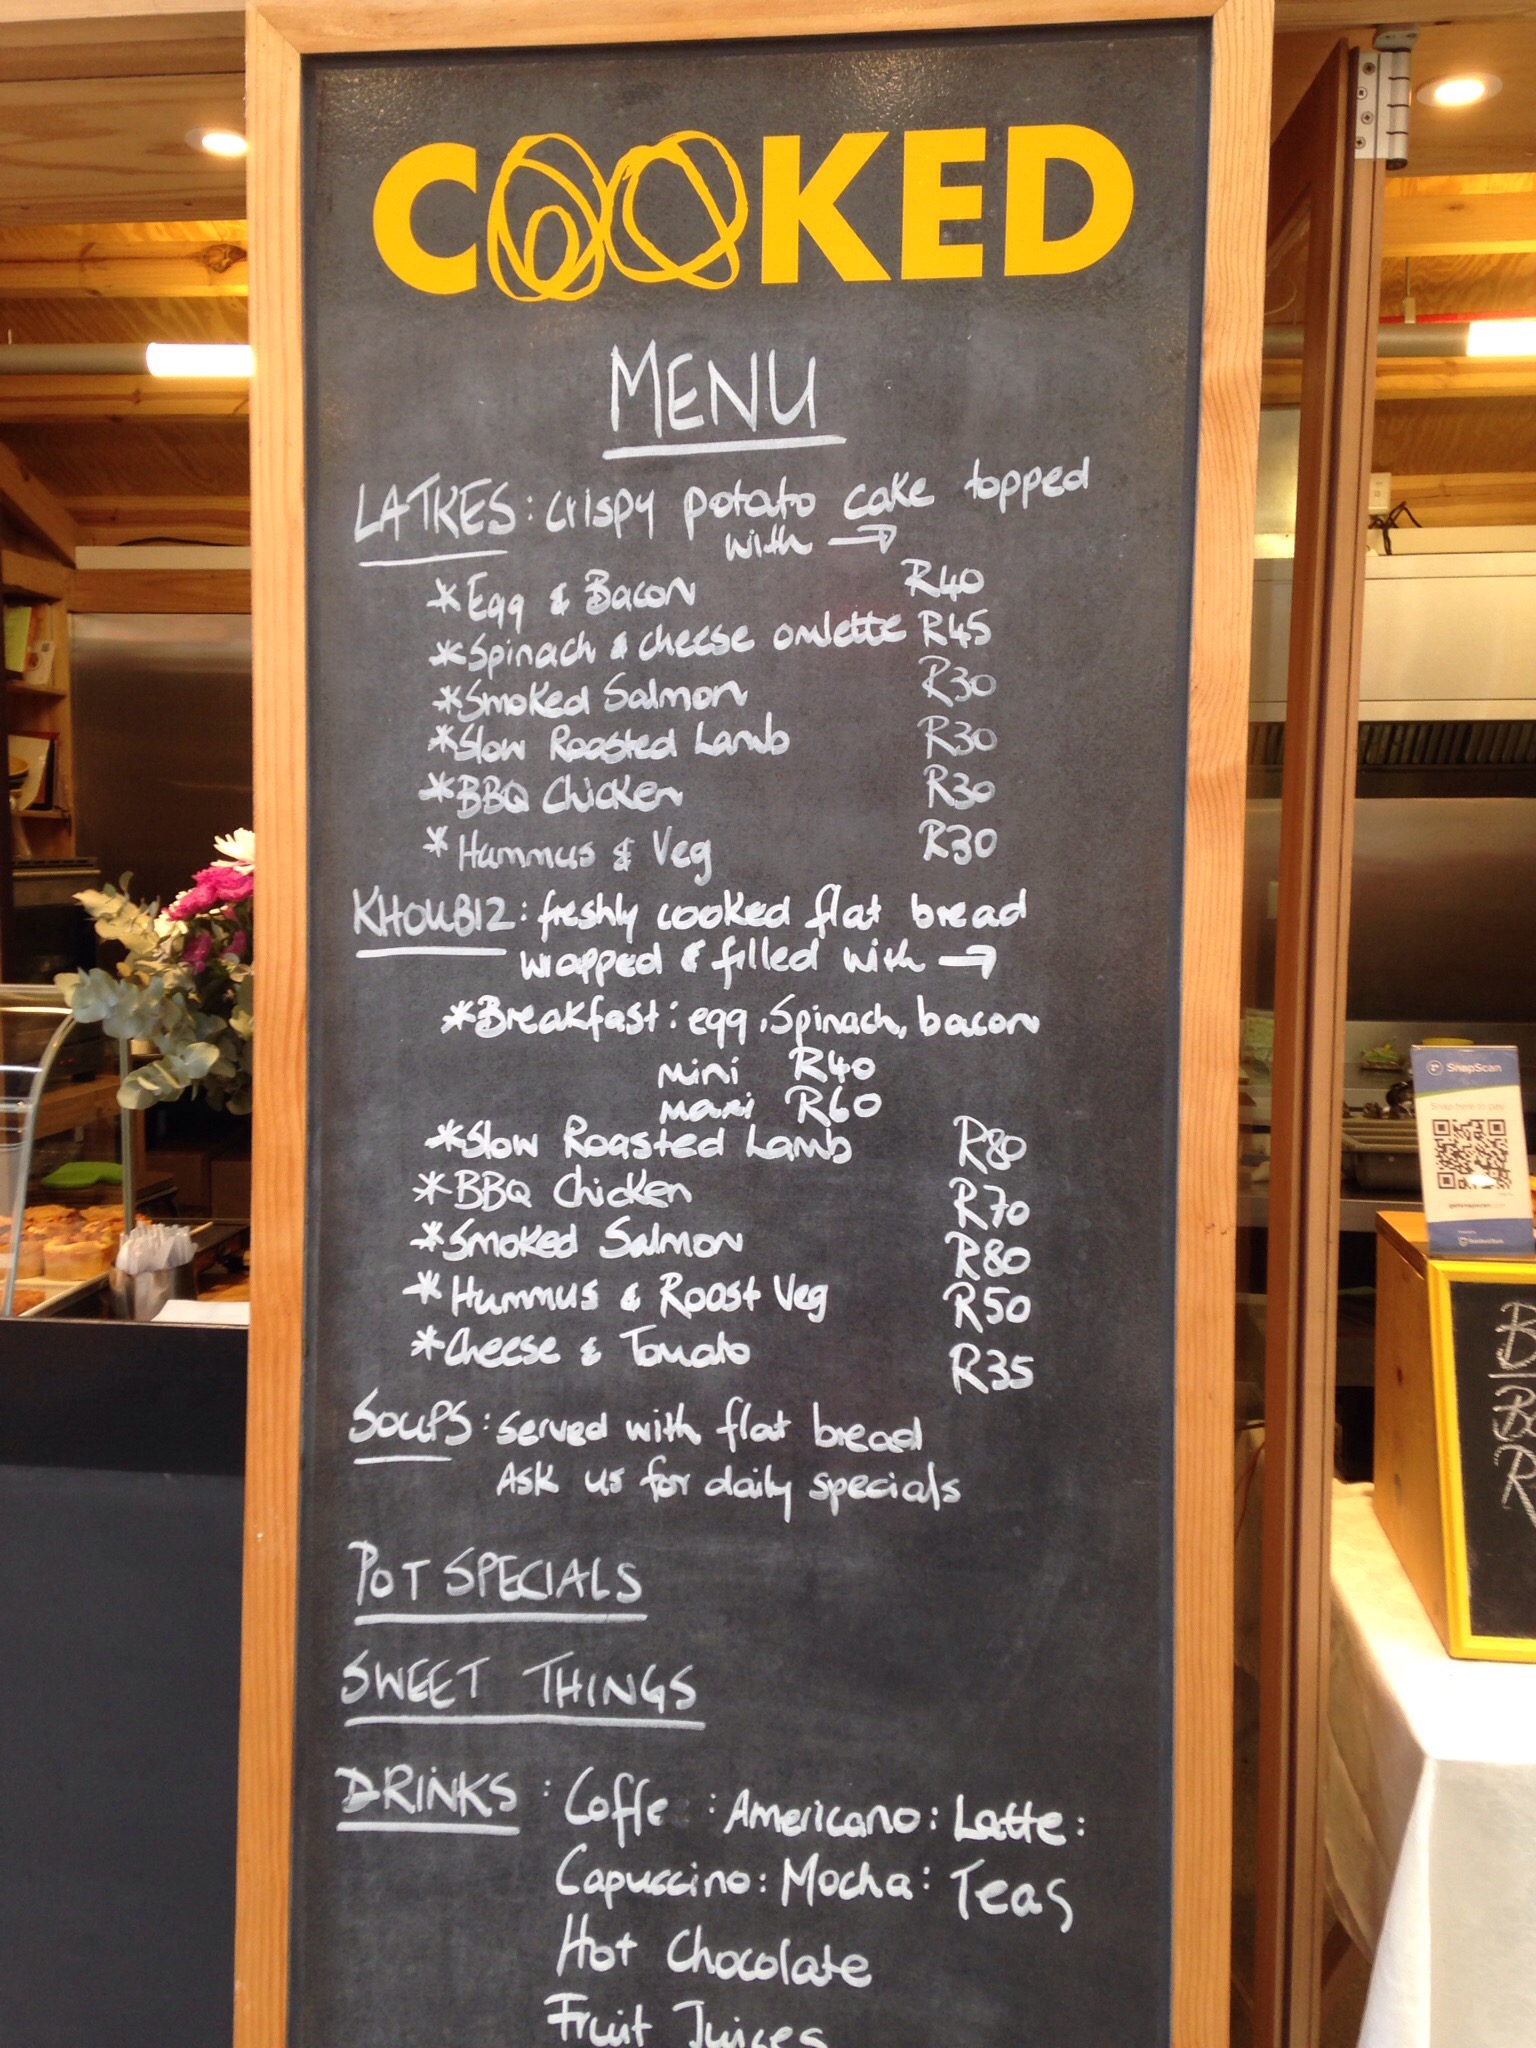 COOKED
MENU
LATKES: crispy potato cake topped
with →
* Egg & Bacon R40
* Spinach & cheese omlette R45
* Smoked Salmon R30
* Slow Roasted Lamb R30
* BBQ Chicken R30
* Hummus & Veg R30
KHOUBIZ: freshly cooked flat bread
wrapped & filled with →
* Breakfast: egg, Spinach, bacon
mini R40
maxi R60
* Slow Roasted Lamb R80
* BBQ Chicken R70
* Smoked Salmon R80
* Hummus & Roast Veg R50
* Cheese & Tomato R35
SOUPS: served with flat bread
Ask us for daily specials
POT SPECIALS
SWEET THINGS
DRINKS: Coffe: Americano: Latte:
Capuccino: Mocha: Teas
Hot Chocolate
Fruit Juices
SnapScan
Snap here to pay
B
B
R